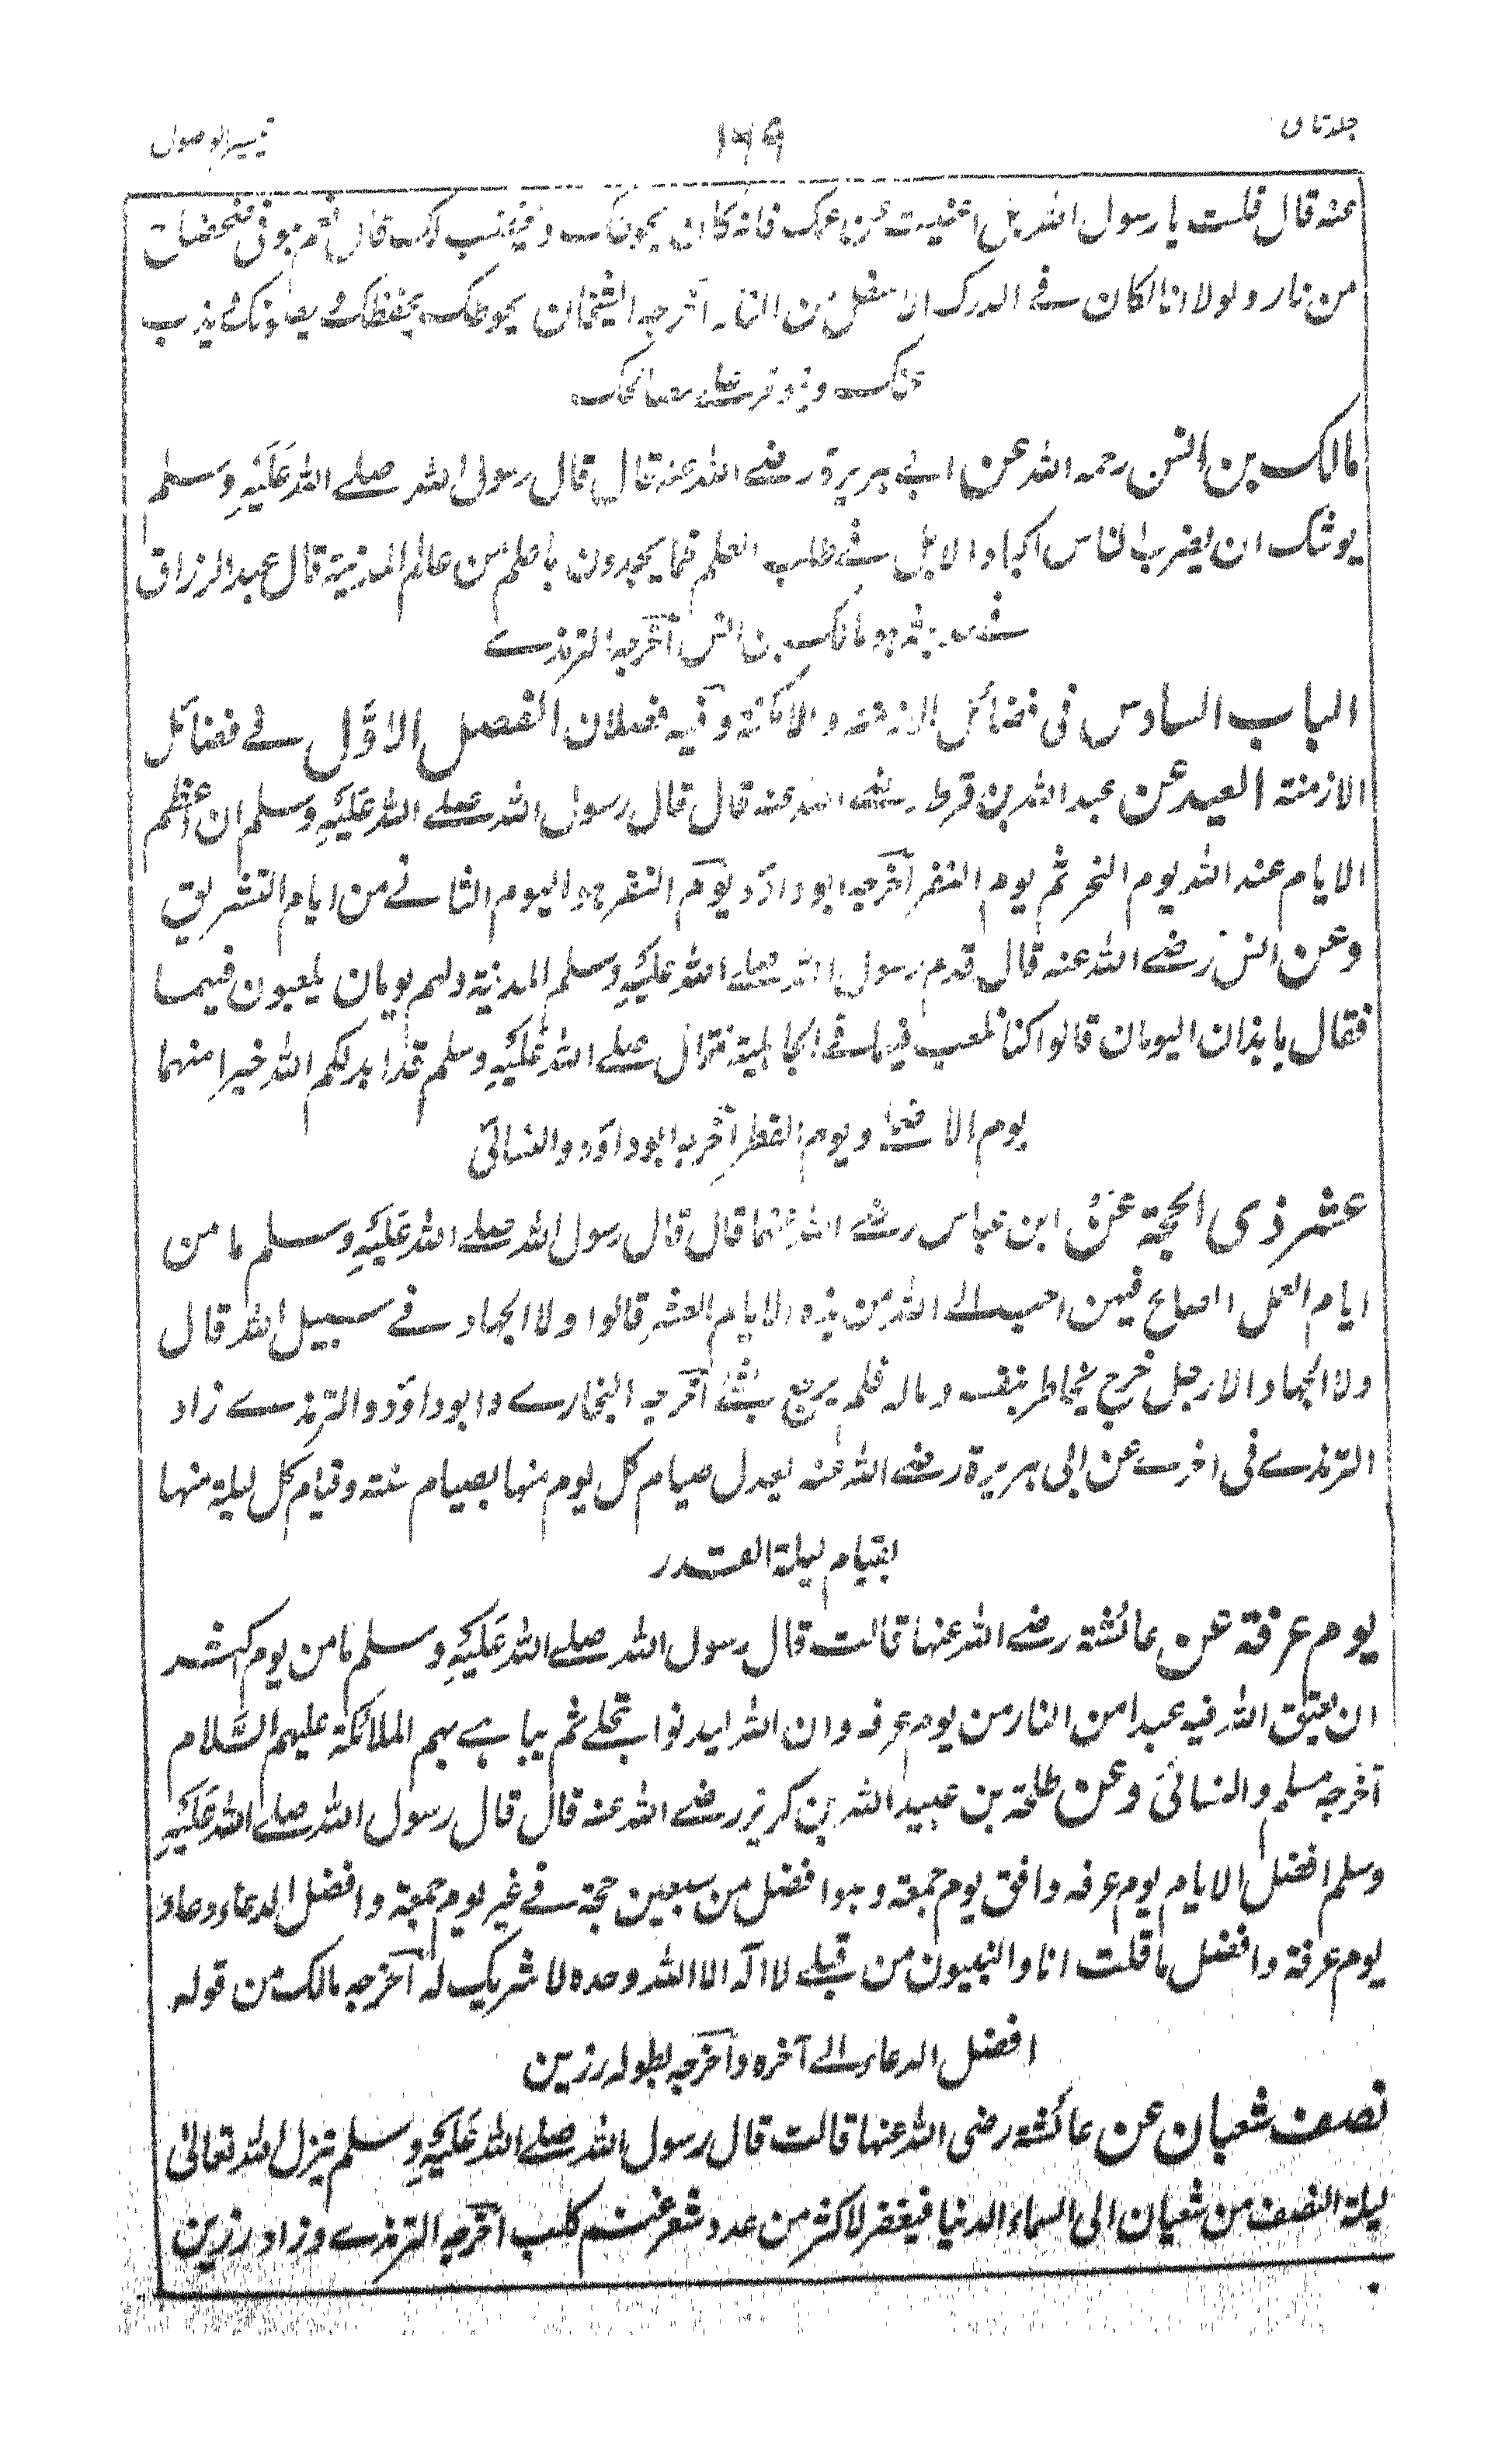 جلد ثانی
۱۶۹
تیسیر الوصول
عنه قال قلت یا رسول الله هل اغنیت عن عمک فانه کان یحوطک و یغضب لک قال نعم هو فی ضحضاح
من نار و لولا انا لکان فے الدرک الاسفل من النار اخرجه الشیخان یحوطک یحفظک و یصونک و یذب
عنک و یتوفر علے مصالحک
مالک بن انس رحمه الله عن ابی هریرة رضے الله عنه قال قال رسول الله صلے الله عَلَیْهِ وَسلم
یوشک ان یضرب الناس اکباد الابل فے طلب العلم فما یجدون باعلم من عالم المدینة قال عبد الرزاق
هو مالک بن انس اخرجه الترمذے
الباب السادس فی فضائل الازمنة و الامکنة و فیه فصلان الفصل الاوّل فے فضائل
الازمنته العید عن عبد الله بن قرط رضے الله عنه قال قال رسول الله صلے الله عَلَیْهِ وسلم ان اعظم
الایام عند الله یوم النحر ثم یوم النفر اخرجه ابو داؤد یوم النفر هو الیوم الثانے من ایام التشریق
وعن انس رضے الله عنه قال قدم رسول الله صلے الله عَلَیْهِ وسلم المدینة ولهم یومان یلعبون فیهما
فقال ما هذان الیومان قالوا کنا نلعب فیهما فے الجاهلیة فقال صلے الله عَلَیْهِ وسلم قد ابدلکم الله خیرا منهما
یوم الاضحے و یوم الفطر اخرجه ابو داؤد و النسائی
عشر ذی الحجة عن ابن عباس رضے الله عنهما قال قال رسول الله صلے الله عَلَیْهِ وسلم ما من
ایام العمل الصالح فیهن احب الے الله من هذه الایام العشر قالوا ولا الجهاد فے سبیل الله قال
ولا الجهاد الا رجل خرج یخاطر بنفسه و ماله فلم یرجع بشئ اخرجه البخارے و ابو داؤد و الترمذے زاد
الترمذے فی اخرے عن ابی هریرة رضے الله عنه یعدل صیام کل یوم منها بصیام سنته و قیام کل لیلة منها
بقیام لیلة القدر
یوم عرفة عن عائشة رضے الله عنها قالت قال رسول الله صلے الله عَلَیْهِ وسلم ما من یوم اکثر
ان یعتق الله فیه عبدا من النار من یوم عرفه و ان الله لیدنو یتجلے ثم یباهے بهم الملائکة علیهم السَّلام
اخرجه مسلم و النسائی وعن طلحة بن عبید الله بن کریز رضے الله عنه قال قال رسول الله صلے الله عَلَیْهِ
وسلم افضل الایام یوم عرفه وافق یوم جمعة و هو افضل من سبعین حجة فے غیر یوم جمعة و افضل الدعاء دعاء
یوم عرفة و افضل ما قلت انا و النبیون من قبلے لا اله الا الله وحده لا شریک له اخرجه مالک من قوله
افضل الدعاء الے آخره و اخرجه بطوله رزین
نصف شعبان عن عائشة رضی الله عنها قالت قال رسول الله صلے الله عَلَیْهِ وسلم ینزل الله تعالی
لیلة النصف من شعبان الی السماء الدنیا فیغفر لاکثر من عدد شعر غنم کلب اخرجه الترمذے و زاد رزین